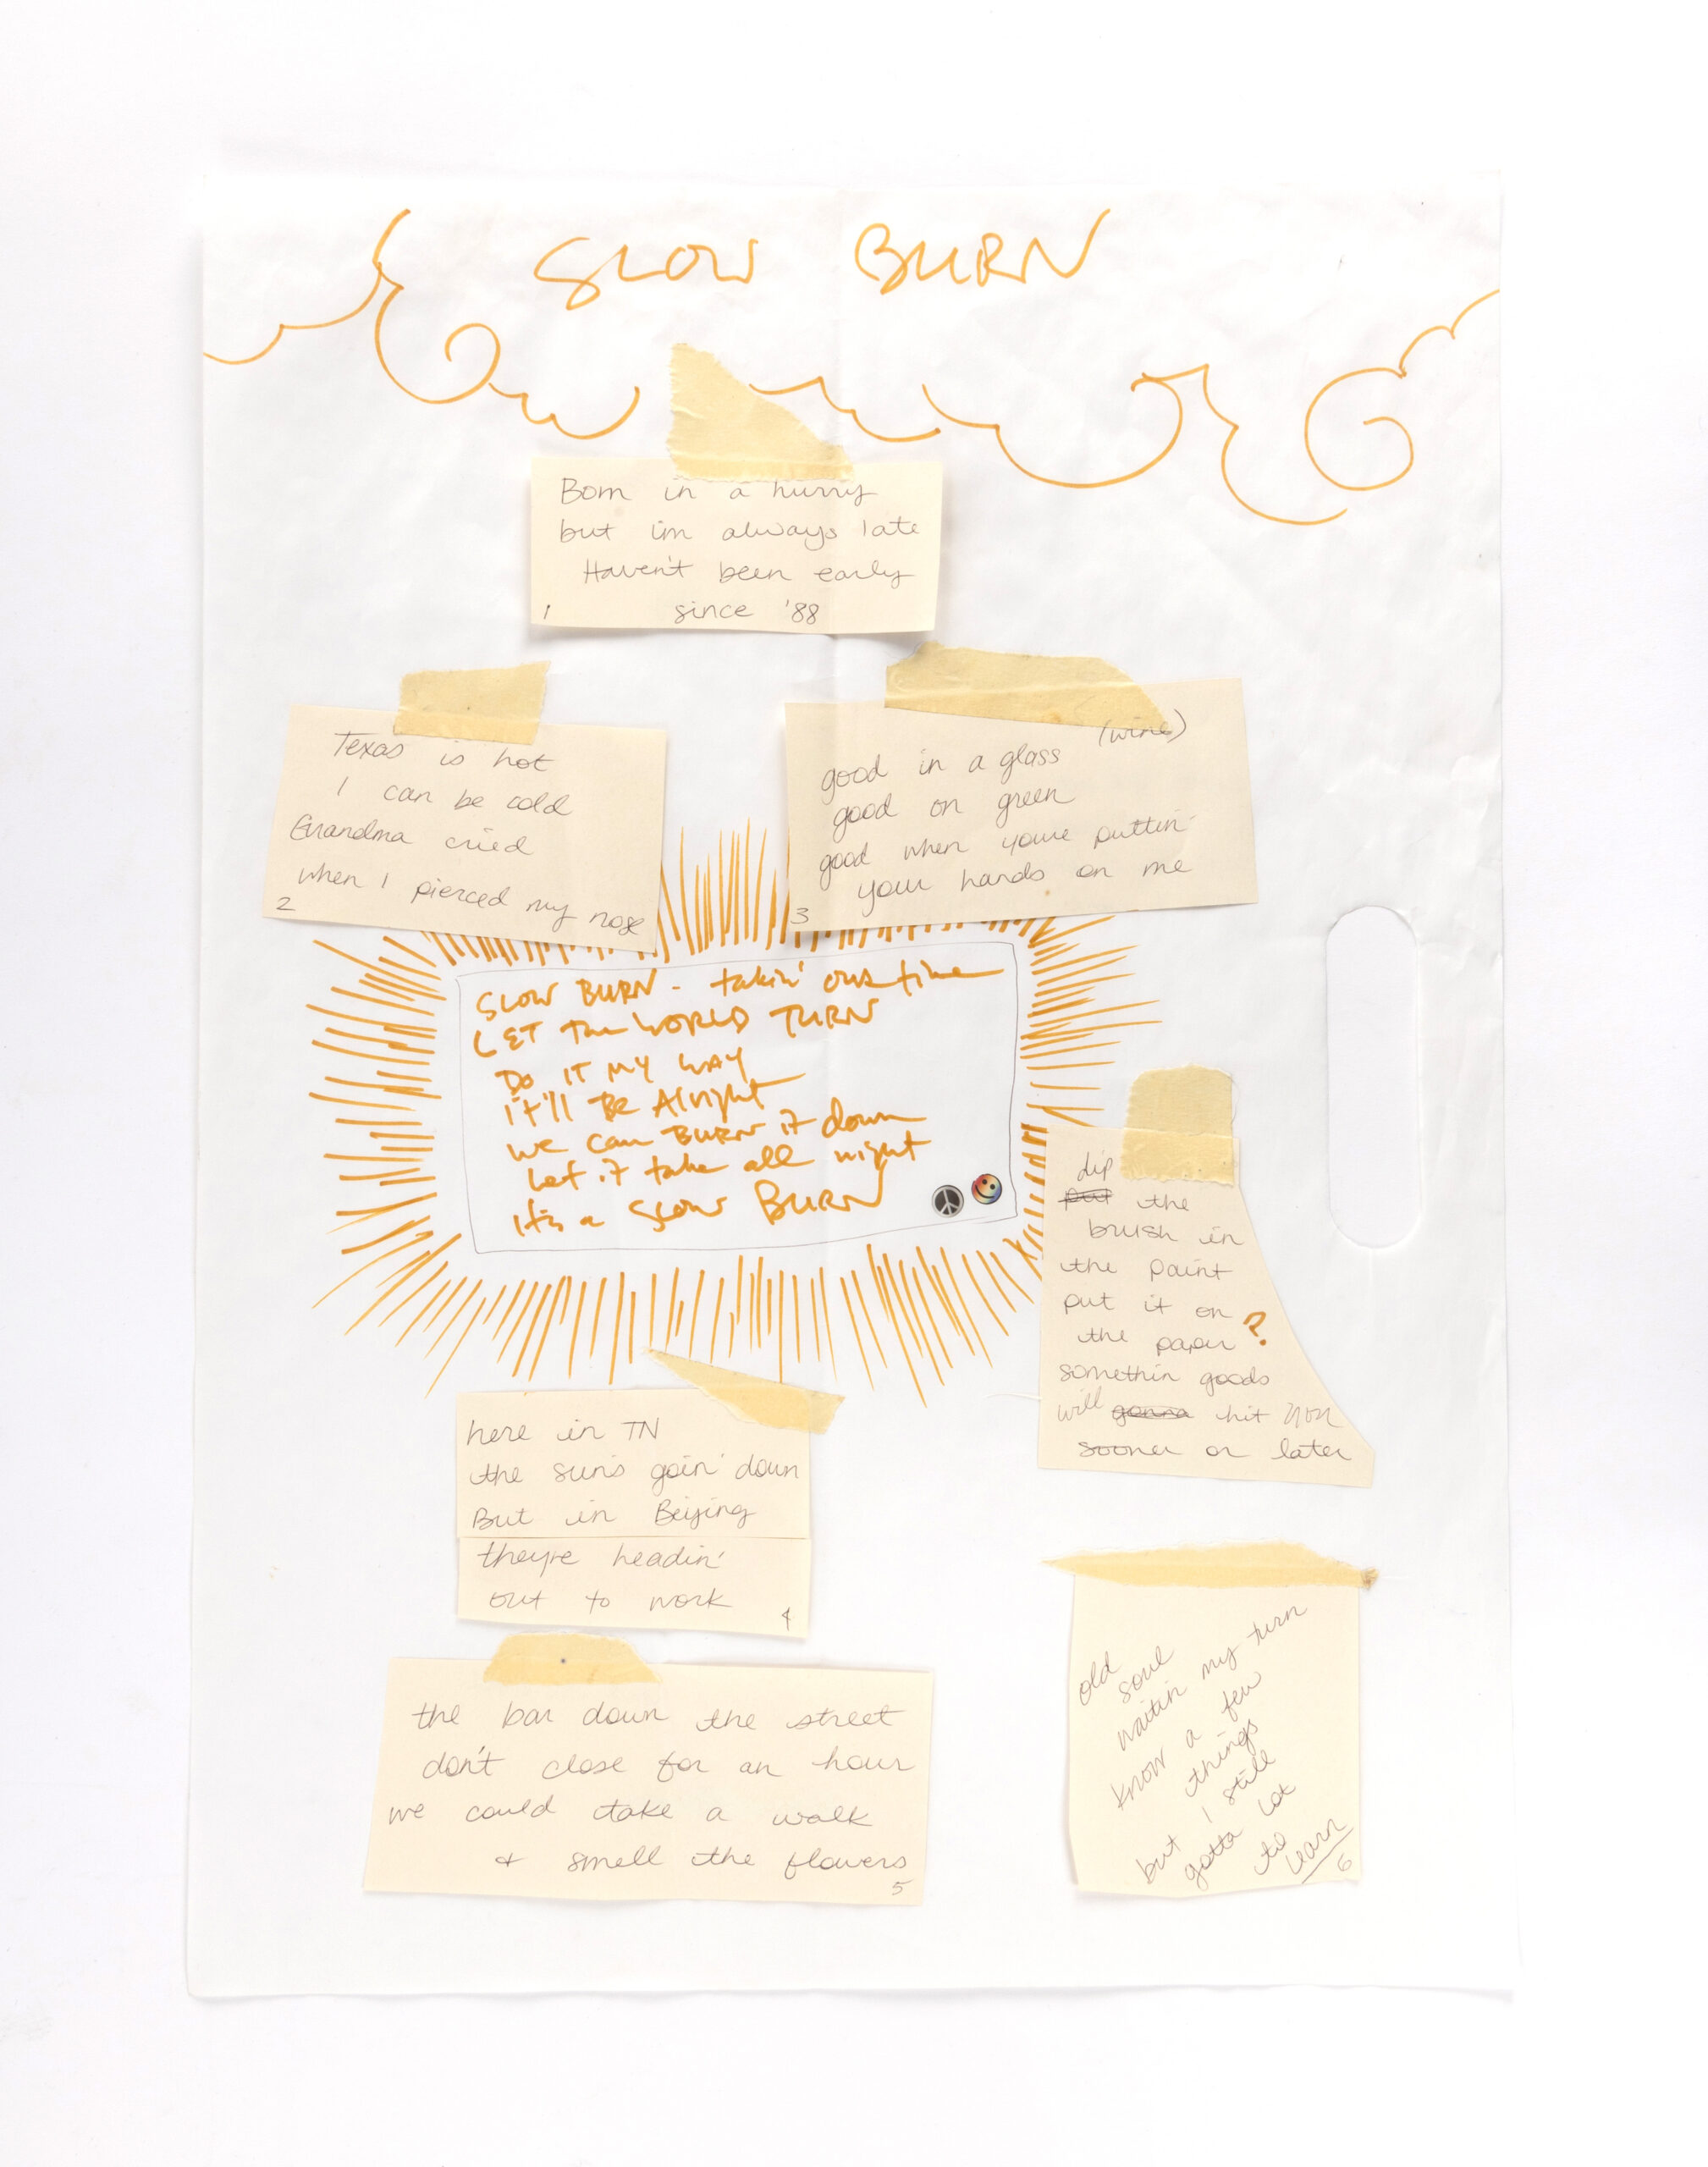 SLOW BURN
Born in a hurry
but im always late
Haven't been early
since '88
1
Texas is hot
I can be cold
Grandma cried
when I pierced my nose
2
(wine)
good in a glass
good on green
good when youre puttin'
your hands on me
3
SLOW BURN - takin' our time
LET The WORLD TURN
Do IT MY WAY
it'll Be Alright
we can BURN it down
Let it take all night
it's a SLOW BURN
dip
put the
brush in
the paint
put it on
the paper ?
somethin goods
will gonna hit you
sooner or later
here in TN
the sun's goin' down
But in Beijing
they're headin'
out to work
4
the bar down the street
don't close for an hour
we could take a walk
& smell the flowers
5
old
soul
waitin my turn
know a few
things
but I still
gotta lot
to learn
6